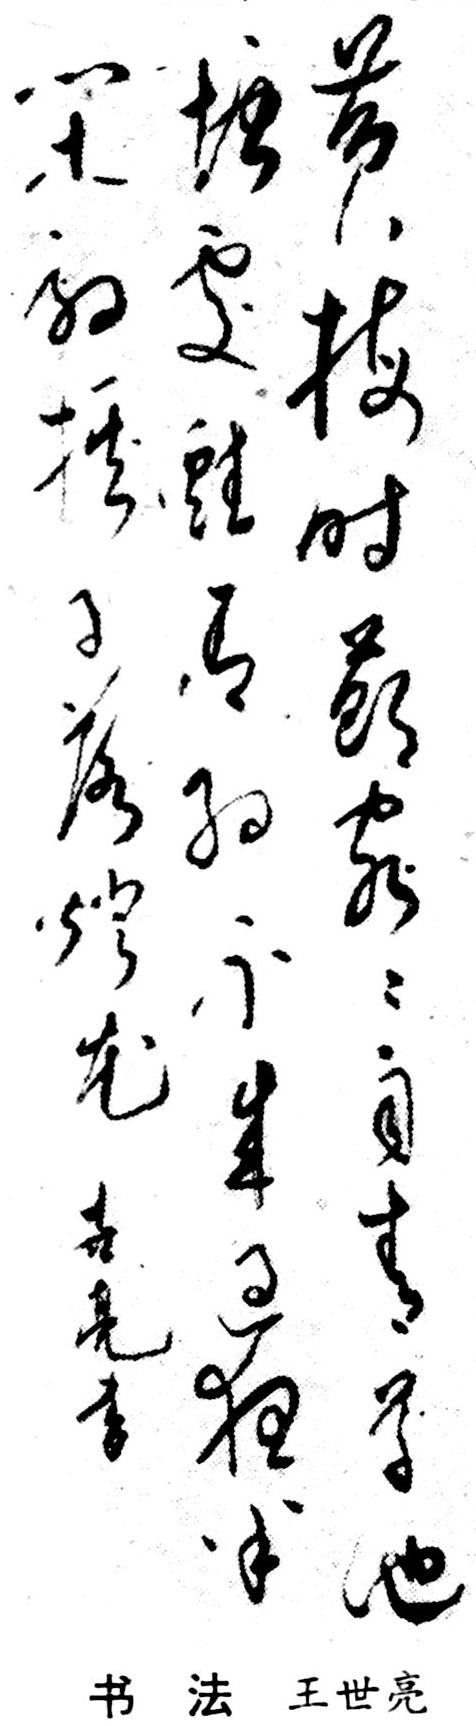 黄梅时节家々雨青草池
塘處蛙有约不来过夜半
闲敲棋子落燈花 世亮书
书 法 王世亮